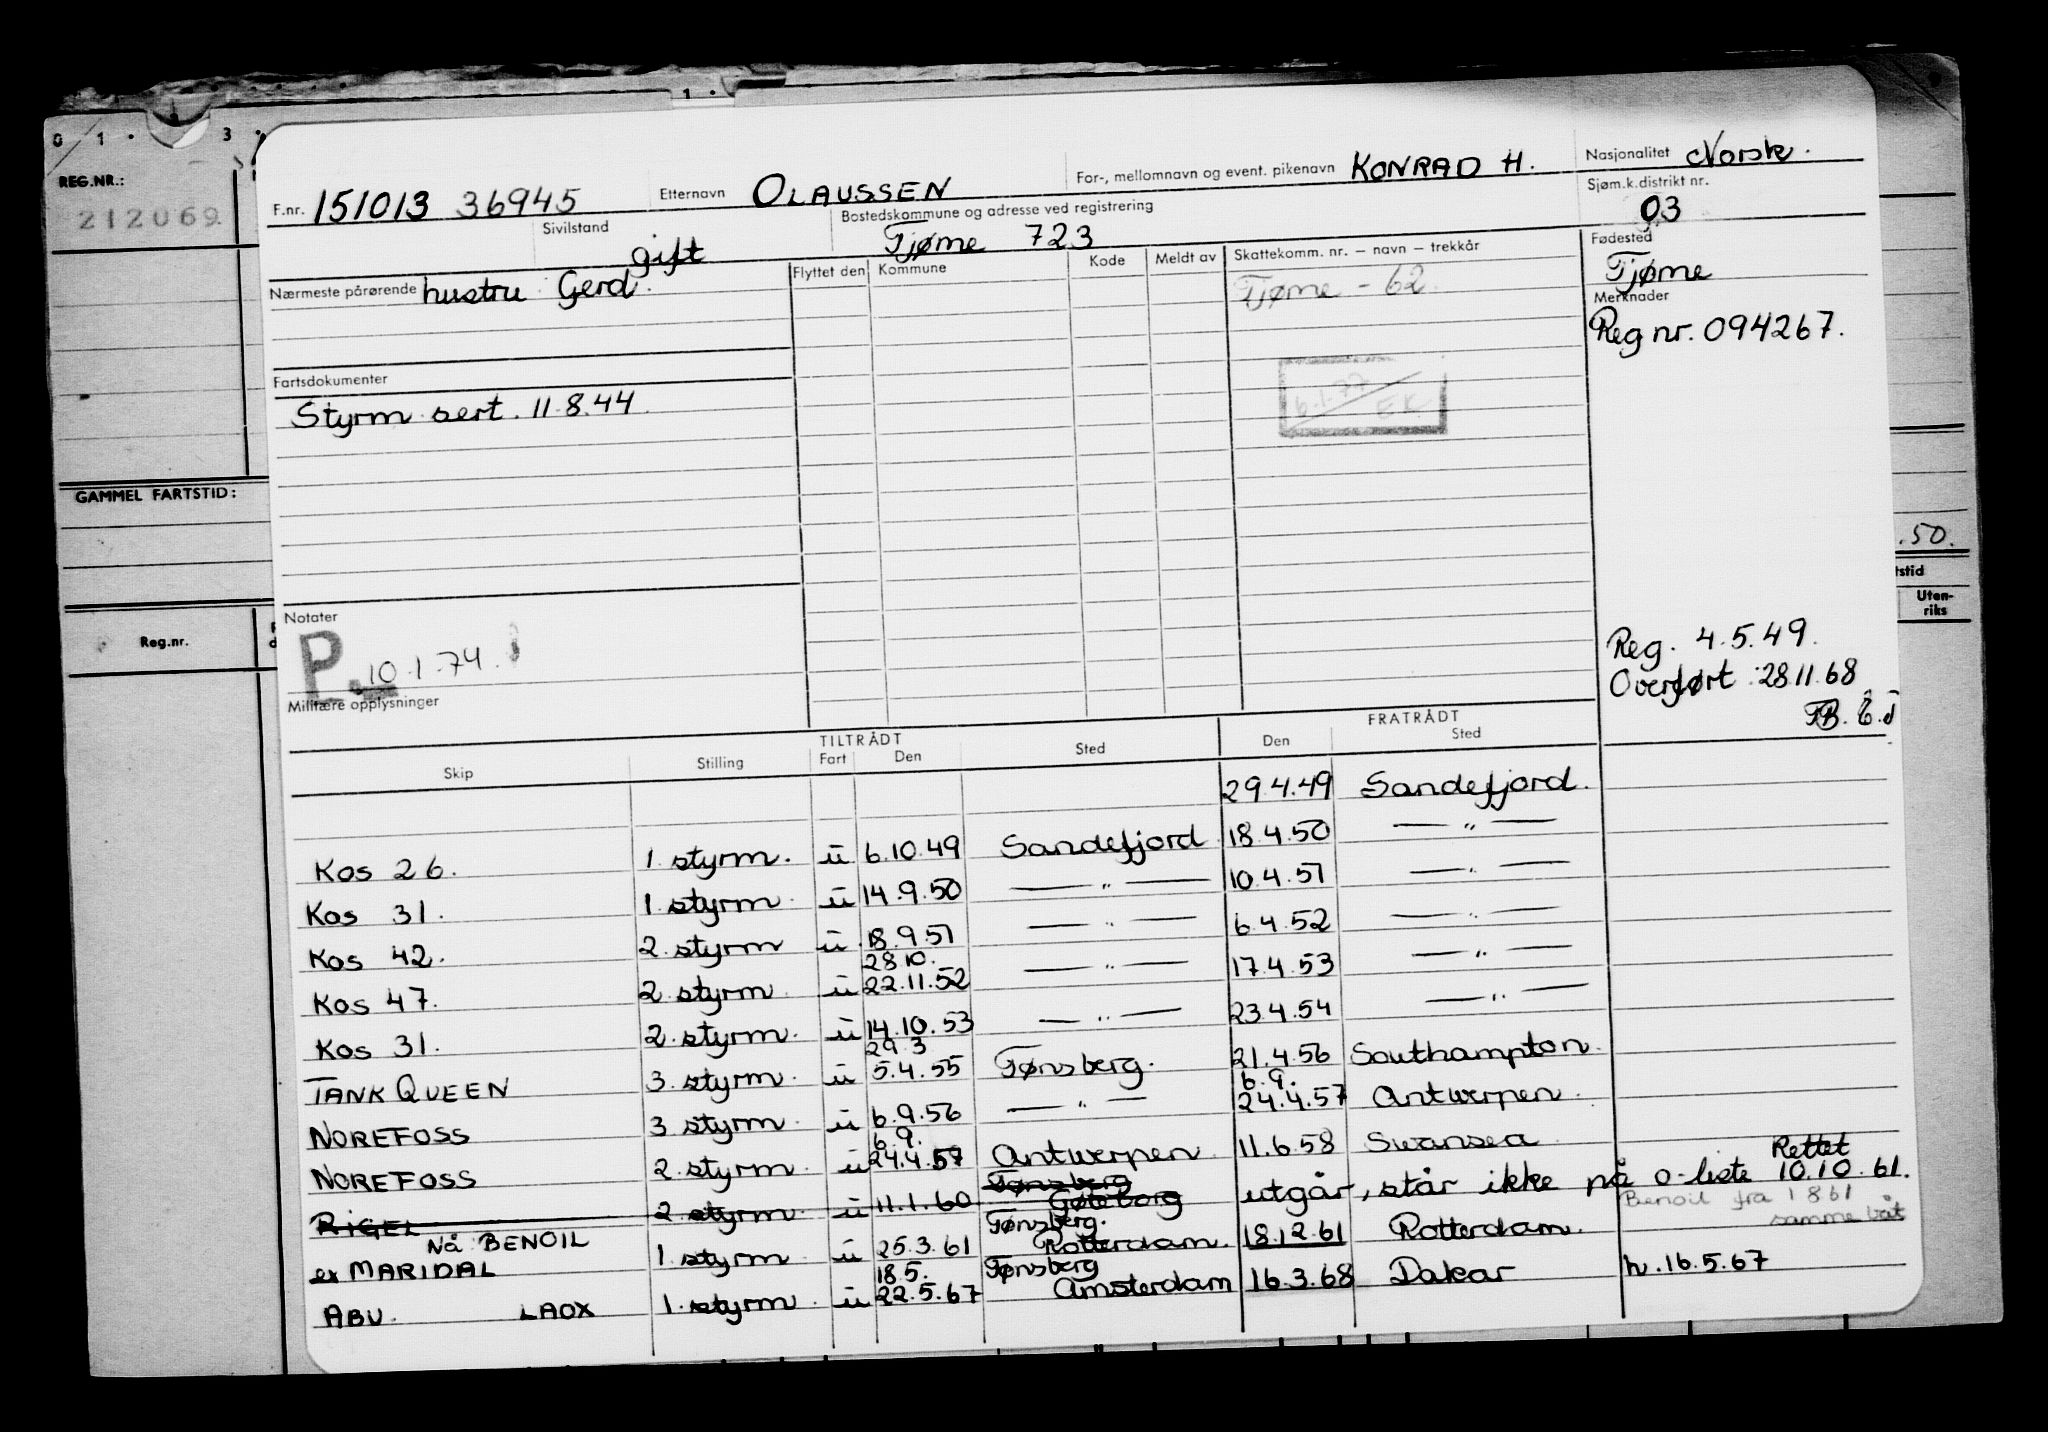 0 1 . 3 . 1 .
REG.NR.:
212069.
GAMMEL FARTSTID:
Reg.nr.
.50.
tstid
Uten-
riks
F.nr. 151013 36945 Etternavn OLAUSSEN For-, mellomnavn og event. pikenavn KONRAD H. Nasjonalitet Norsk.
Sivilstand gift Bostedskommune og adresse ved registrering Tjøme 723 Sjøm.k.distrikt nr. 03
Nærmeste pårørende hustru Gerd. Flyttet den Kommune Kode Meldt av Skattekomm. nr. – navn – trekkår Fødested
Tjøme - 62. Tjøme
Merknader
Reg nr. 094267.
Fartsdokumenter
Styrm sert. 11.8.44. 6.1.77 EK
Notater
P. 10.1.74.
Reg. 4.5.49.
Overført 28.11.68
Militære opplysninger
TILTRÅDT FRATRÅDT
Skip Stilling Fart Den Sted Den Sted
29.4.49 Sandefjord.
Kos 26. 1. styrm. u 6.10.49 Sandefjord 18.4.50 — " —
Kos 31. 1. styrm. u 14.9.50 — " — 10.4.51 — " —
Kos 42. 2. styrm u 18.9.51 — " — 6.4.52 — " —
28.10.
Kos 47. 2. styrm. u 22.11.52 — " — 17.4.53 — " —
Kos 31. 2. styrm. u 14.10.53 — " — 23.4.54 — " —
29.3
TANK QUEEN 3. styrm. u 5.4.55 Tønsberg. 21.4.56 Southampton.
6.9.
NOREFOSS 3. styrm. u 6.9.56 — " — 24.4.57 Antwerpen.
6.9.
NOREFOSS 2. styrm. u 24.4.57 Antwerpen 11.6.58 Swansea
Tønsberg Rettet
RIGEL 2. styrm. u 11.1.60 Gøteborg utgår, står ikke på o-liste 10.10.61.
Nå BENOIL Tønsberg. Benoil fra 1861
samme båt
ex MARIDAL 1. styrm u 25.3.61 Rotterdam. 18.12.61 Rotterdam.
18.5. Tønsberg
ABU. LAOX 1. styrm. u 22.5.67 Amsterdam 16.3.68 Dakar h. 16.5.67